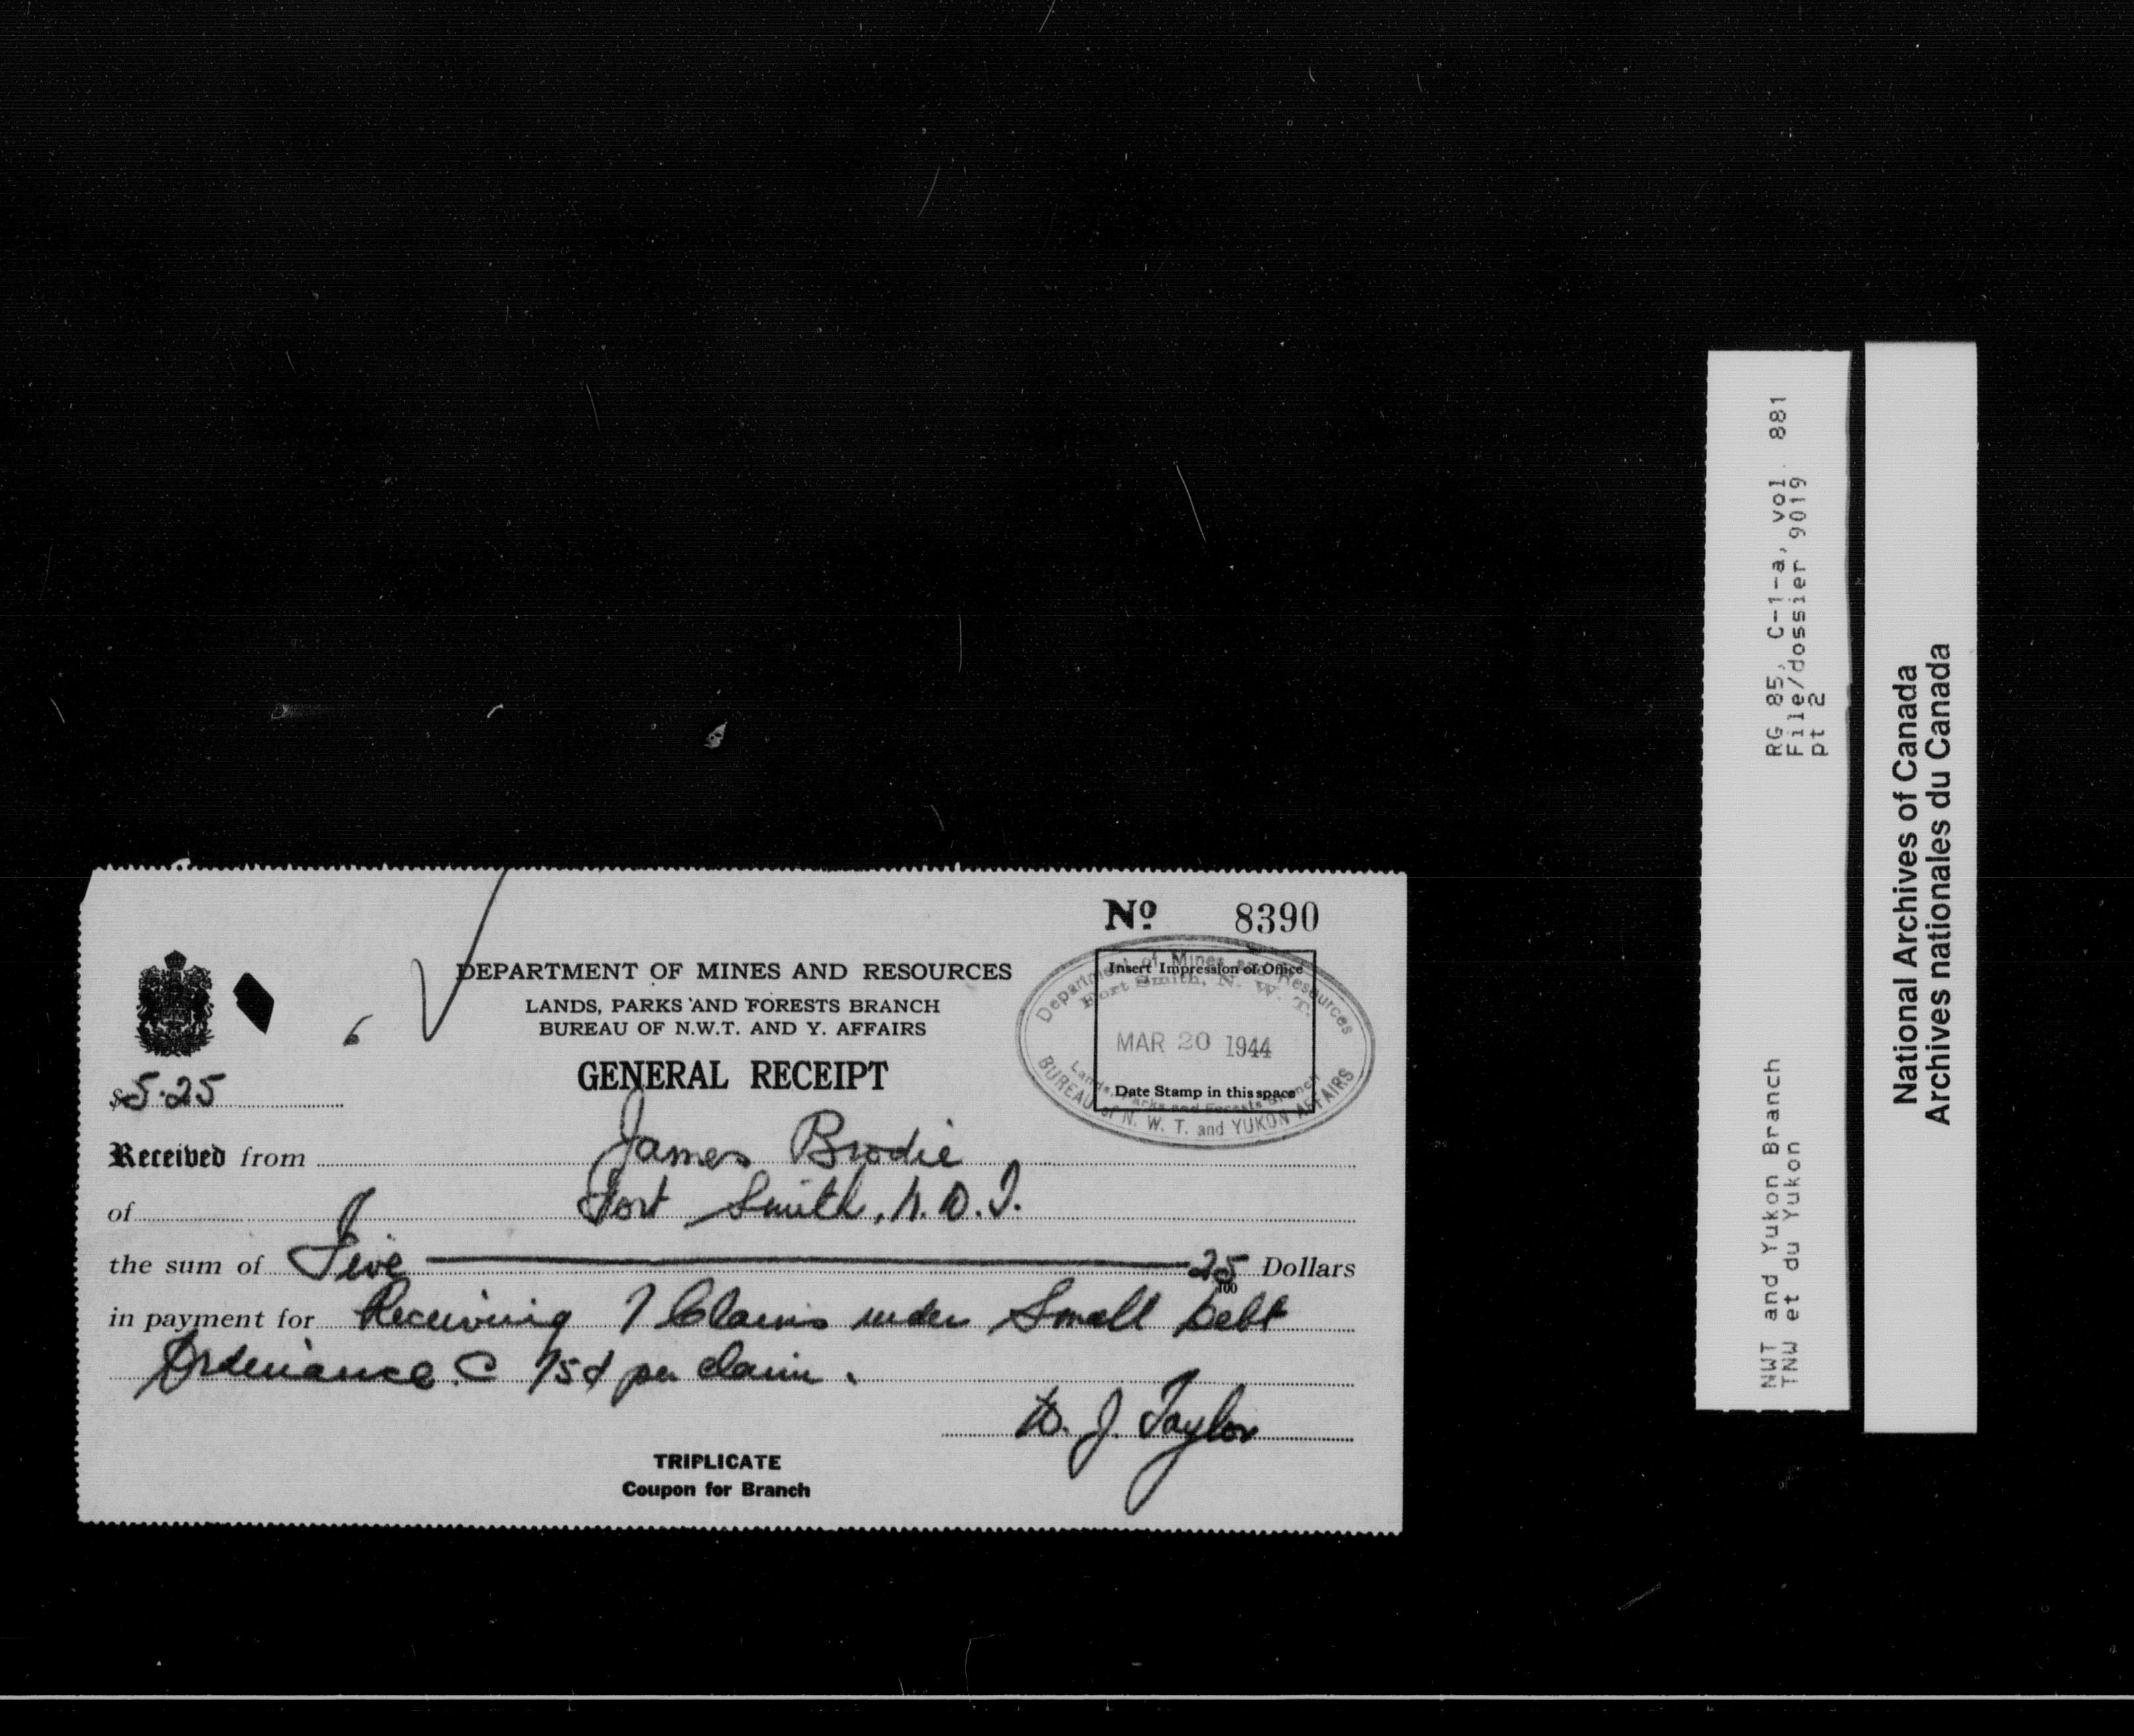 Nº 8390
DEPARTMENT OF MINES AND RESOURCES
LANDS, PARKS AND FORESTS BRANCH
BUREAU OF N.W.T. AND Y. AFFAIRS
GENERAL RECEIPT
Insert Impression of Office
Date Stamp in this space
Department of Mines and Resources
Fort Smith, N. W. T.
MAR 20 1944
Lands, Parks and Forests Branch
BUREAU of N. W. T. and YUKON AFFAIRS
$5.25
Received from James Brodie
of Fort Smith, N.W.T.
the sum of Five 25/100 Dollars
in payment for Receiving 7 Claims under Small Debt
Ordenance. @ 75¢ per claim.
D. J. Taylor
TRIPLICATE
Coupon for Branch
RG 85, C-1-a, vol. 881
File/dossier 9019
pt 2
NWT and Yukon Branch
TNW et du Yukon
National Archives of Canada
Archives nationales du Canada